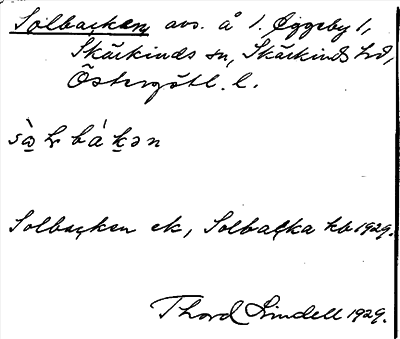 Solbacken avs. å 1. Øggeby 1,
Skärkinds sn, Skärkinds hd,
Östergötl. l.
Solbacken ek, Solbacka kb 1929.
Thord Lindell 1929.